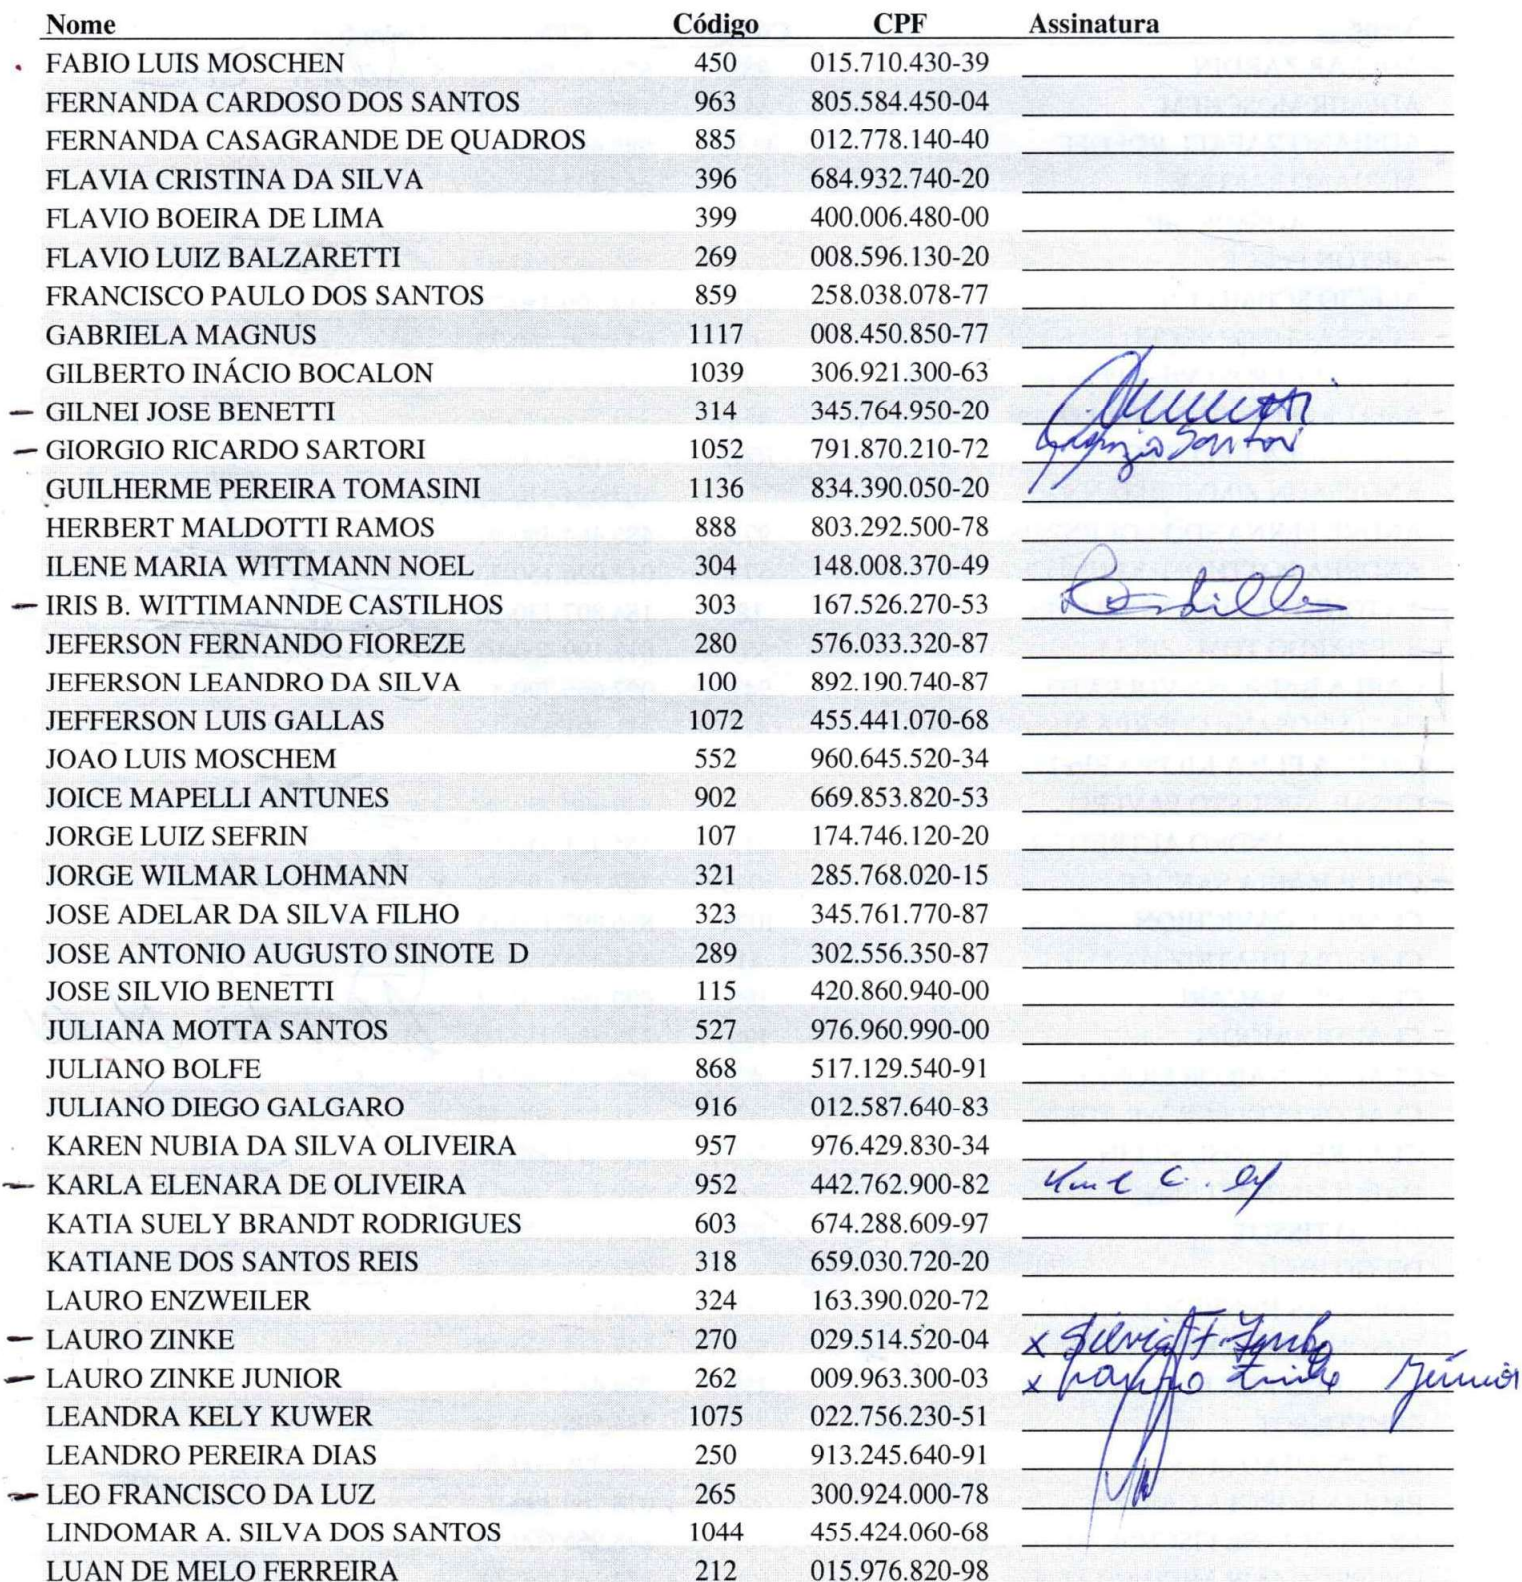 Nome Código CPF Assinatura
FABIO LUIS MOSCHEN 450 015.710.430-39
FERNANDA CARDOSO DOS SANTOS 963 805.584.450-04
FERNANDA CASAGRANDE DE QUADROS 885 012.778.140-40
FLAVIA CRISTINA DA SILVA 396 684.932.740-20
FLAVIO BOEIRA DE LIMA 399 400.006.480-00
FLAVIO LUIZ BALZARETTI 269 008.596.130-20
FRANCISCO PAULO DOS SANTOS 859 258.038.078-77
GABRIELA MAGNUS 1117 008.450.850-77
GILBERTO INÁCIO BOCALON 1039 306.921.300-63
GILNEI JOSE BENETTI 314 345.764.950-20
GIORGIO RICARDO SARTORI 1052 791.870.210-72 Giorgio Sartori
GUILHERME PEREIRA TOMASINI 1136 834.390.050-20
HERBERT MALDOTTI RAMOS 888 803.292.500-78
ILENE MARIA WITTMANN NOEL 304 148.008.370-49
IRIS B. WITTIMANNDE CASTILHOS 303 167.526.270-53
JEFERSON FERNANDO FIOREZE 280 576.033.320-87
JEFERSON LEANDRO DA SILVA 100 892.190.740-87
JEFFERSON LUIS GALLAS 1072 455.441.070-68
JOAO LUIS MOSCHEM 552 960.645.520-34
JOICE MAPELLI ANTUNES 902 669.853.820-53
JORGE LUIZ SEFRIN 107 174.746.120-20
JORGE WILMAR LOHMANN 321 285.768.020-15
JOSE ADELAR DA SILVA FILHO 323 345.761.770-87
JOSE ANTONIO AUGUSTO SINOTE D 289 302.556.350-87
JOSE SILVIO BENETTI 115 420.860.940-00
JULIANA MOTTA SANTOS 527 976.960.990-00
JULIANO BOLFE 868 517.129.540-91
JULIANO DIEGO GALGARO 916 012.587.640-83
KAREN NUBIA DA SILVA OLIVEIRA 957 976.429.830-34
KARLA ELENARA DE OLIVEIRA 952 442.762.900-82
KATIA SUELY BRANDT RODRIGUES 603 674.288.609-97
KATIANE DOS SANTOS REIS 318 659.030.720-20
LAURO ENZWEILER 324 163.390.020-72
LAURO ZINKE 270 029.514.520-04 x
LAURO ZINKE JUNIOR 262 009.963.300-03 x Lauro Zinke Júnior
LEANDRA KELY KUWER 1075 022.756.230-51
LEANDRO PEREIRA DIAS 250 913.245.640-91
LEO FRANCISCO DA LUZ 265 300.924.000-78
LINDOMAR A. SILVA DOS SANTOS 1044 455.424.060-68
LUAN DE MELO FERREIRA 212 015.976.820-98